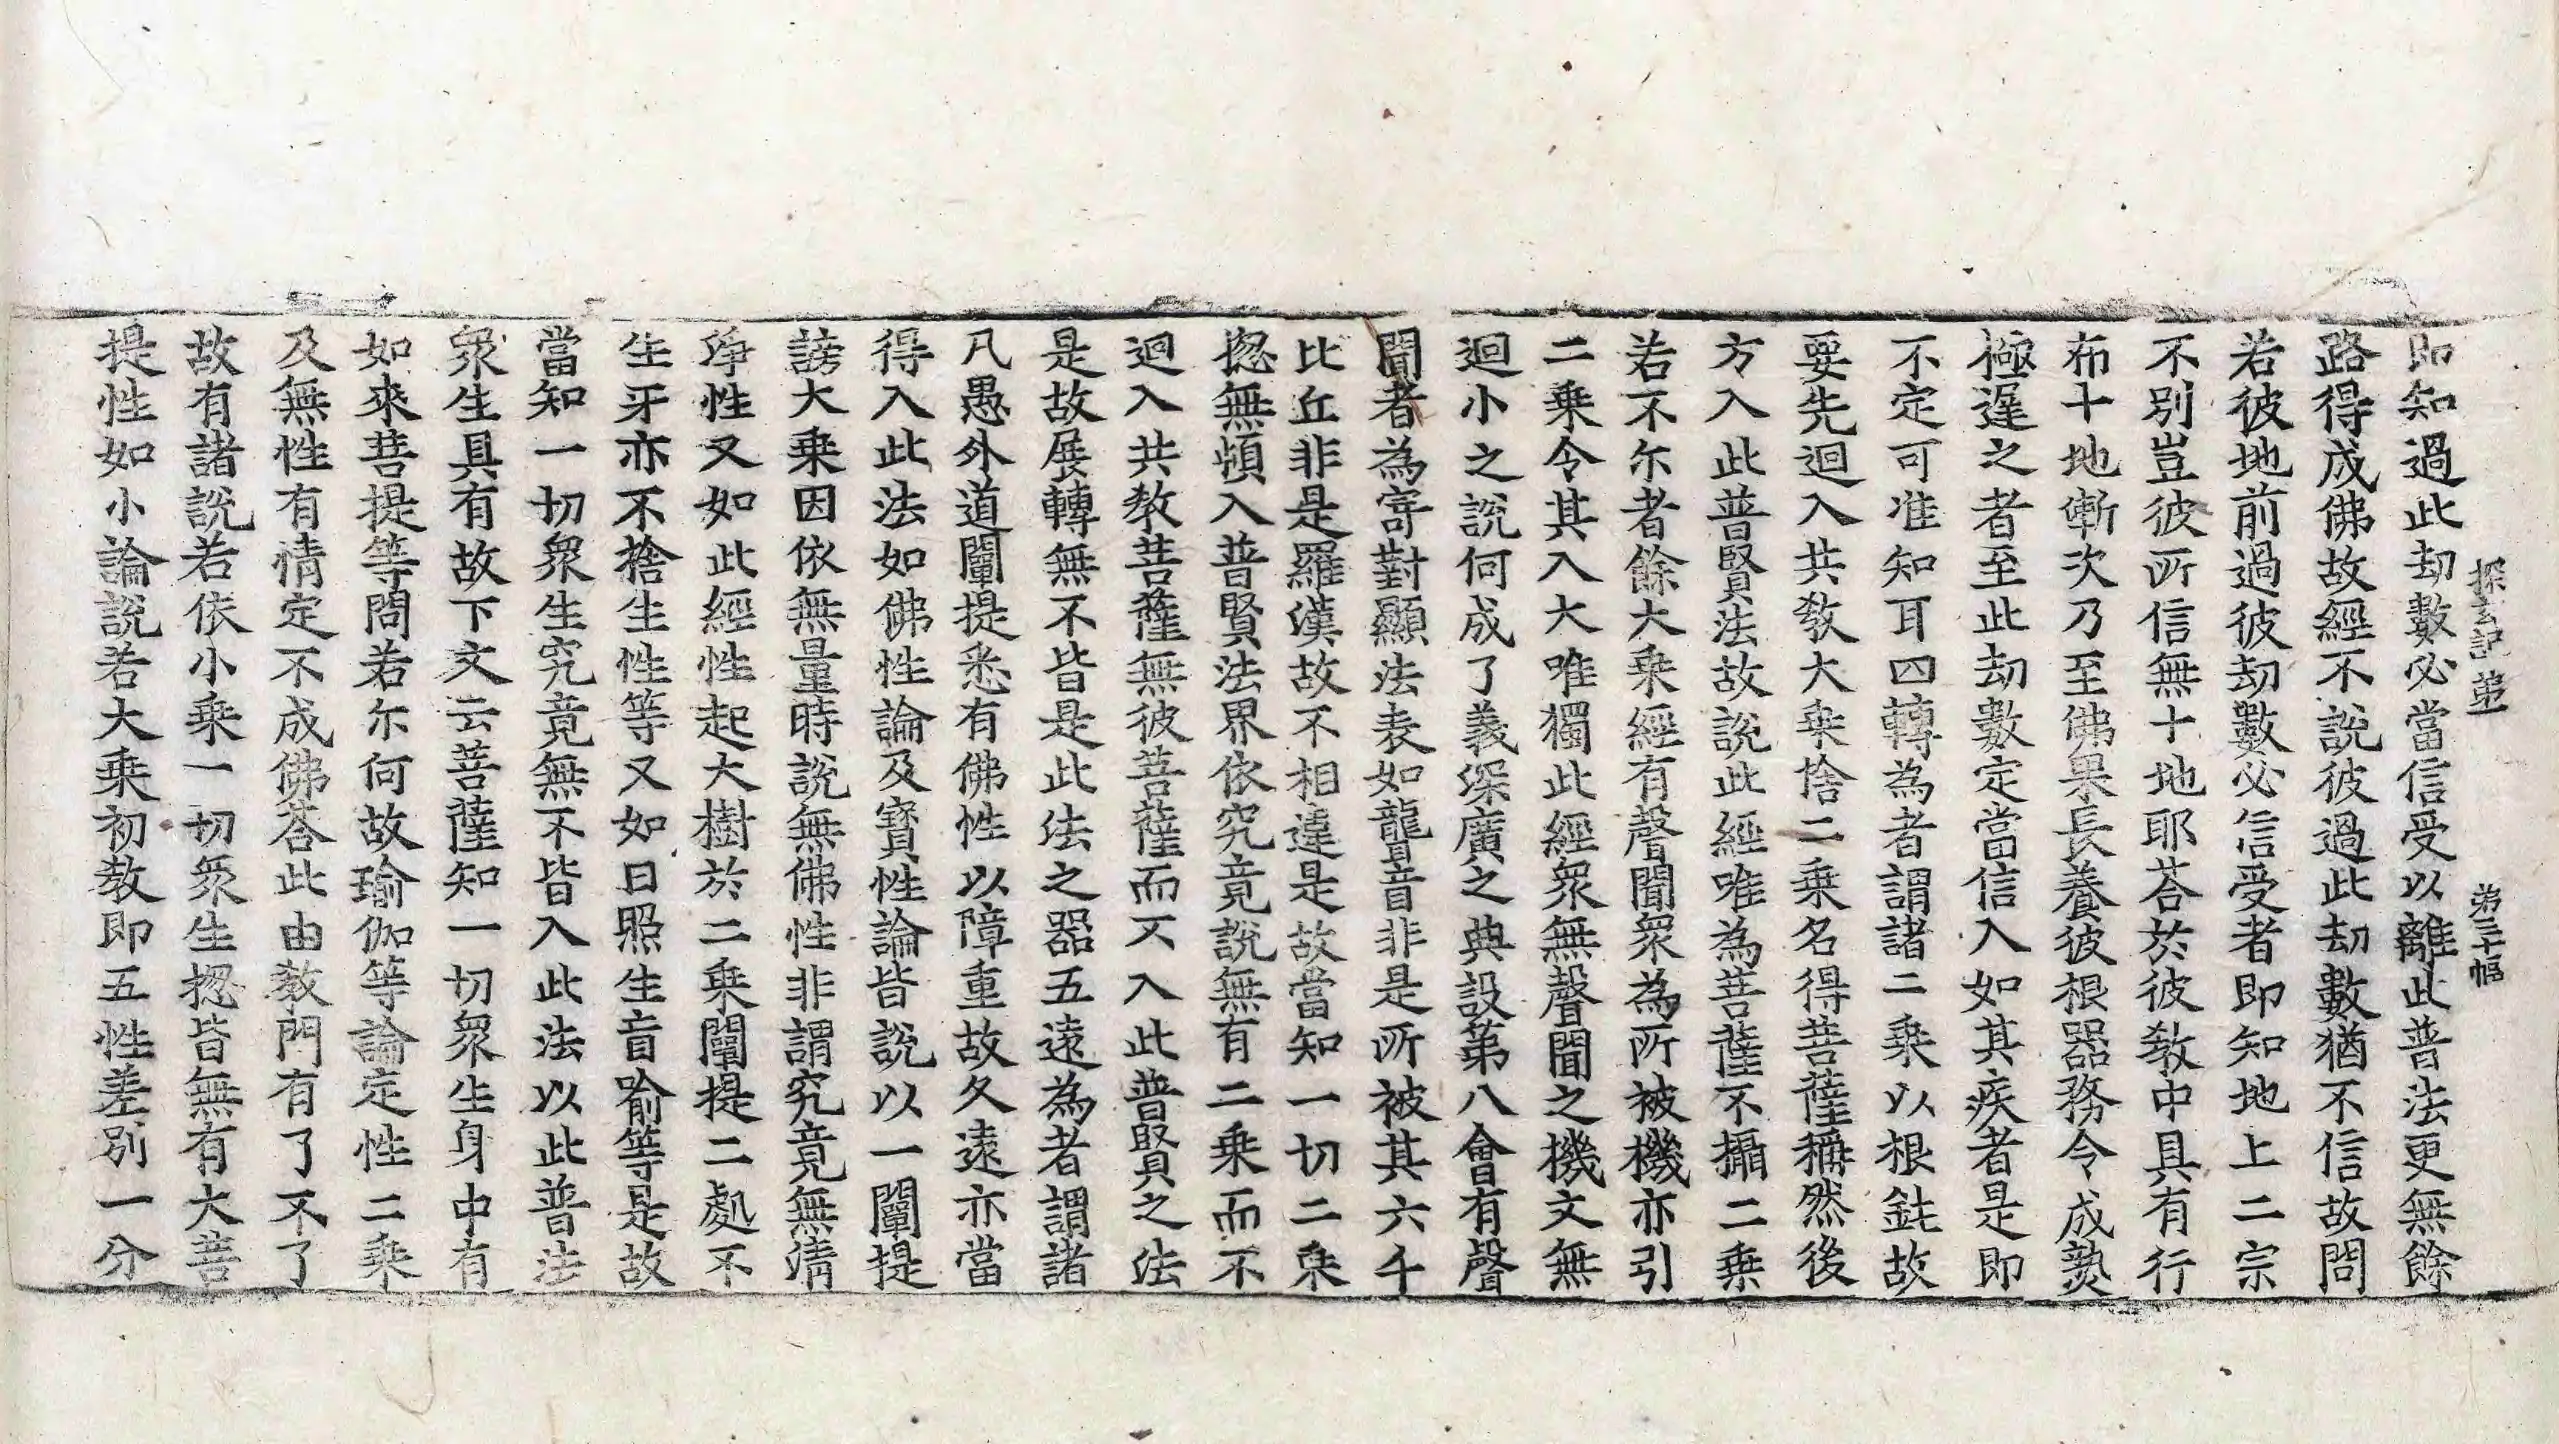 探玄記第一　第三十幅
即知過此劫數必當信受以離此普法更無餘
路得成佛故經不說彼過此劫數猶不信故問
若彼地前過彼劫數必信受者即知地上二宗
不別豈彼所信無十地耶荅於彼教中具有行
布十地漸次乃至佛果長養彼根器務令成熟
極遲之者至此劫數定當信入如其疾者是即
不定可准知耳四轉為者謂諸二乘以根鈍故
要先迴入共教大乘捨二乘名得菩薩稱然後
方入此普賢法故說此經唯為菩薩不攝二乘
若不尒者餘大乘經有聲聞眾為所被機亦引
二乘令其入大唯獨此經眾無聲聞之機文無
迴小之說何成了義深廣之典設第八會有聲
聞者為寄對顯法表如聾盲非是所被其六千
比丘非是羅漢故不相違是故當知一切二乗
揔無頓入普賢法界依究竟說無有二乘而不
迴入共教菩薩無彼菩薩而不入此普賢之法
是故展轉無不皆是此法之器五遠為者謂諸
凡愚外道闡提悉有佛性以障重故久遠亦當
得入此法如佛性論及寶性論皆說以一闡提
謗大乘因依無量時說無佛性非謂究竟無清
淨性又如此經性起大樹於二乘闡提二處不
生牙亦不捨生性等又如日照生盲喻等是故
當知一切眾生究竟無不皆入此法以此普法
眾生具有故下文云菩薩知一切眾生身中有
如來菩提等問若尒何故瑜伽等論定性二乘
及無性有情定不成佛荅此由教門有了不了
故有諸說若依小乘一切眾生揔皆無有大菩
提性如小論說若大乘初教即五性差別一分